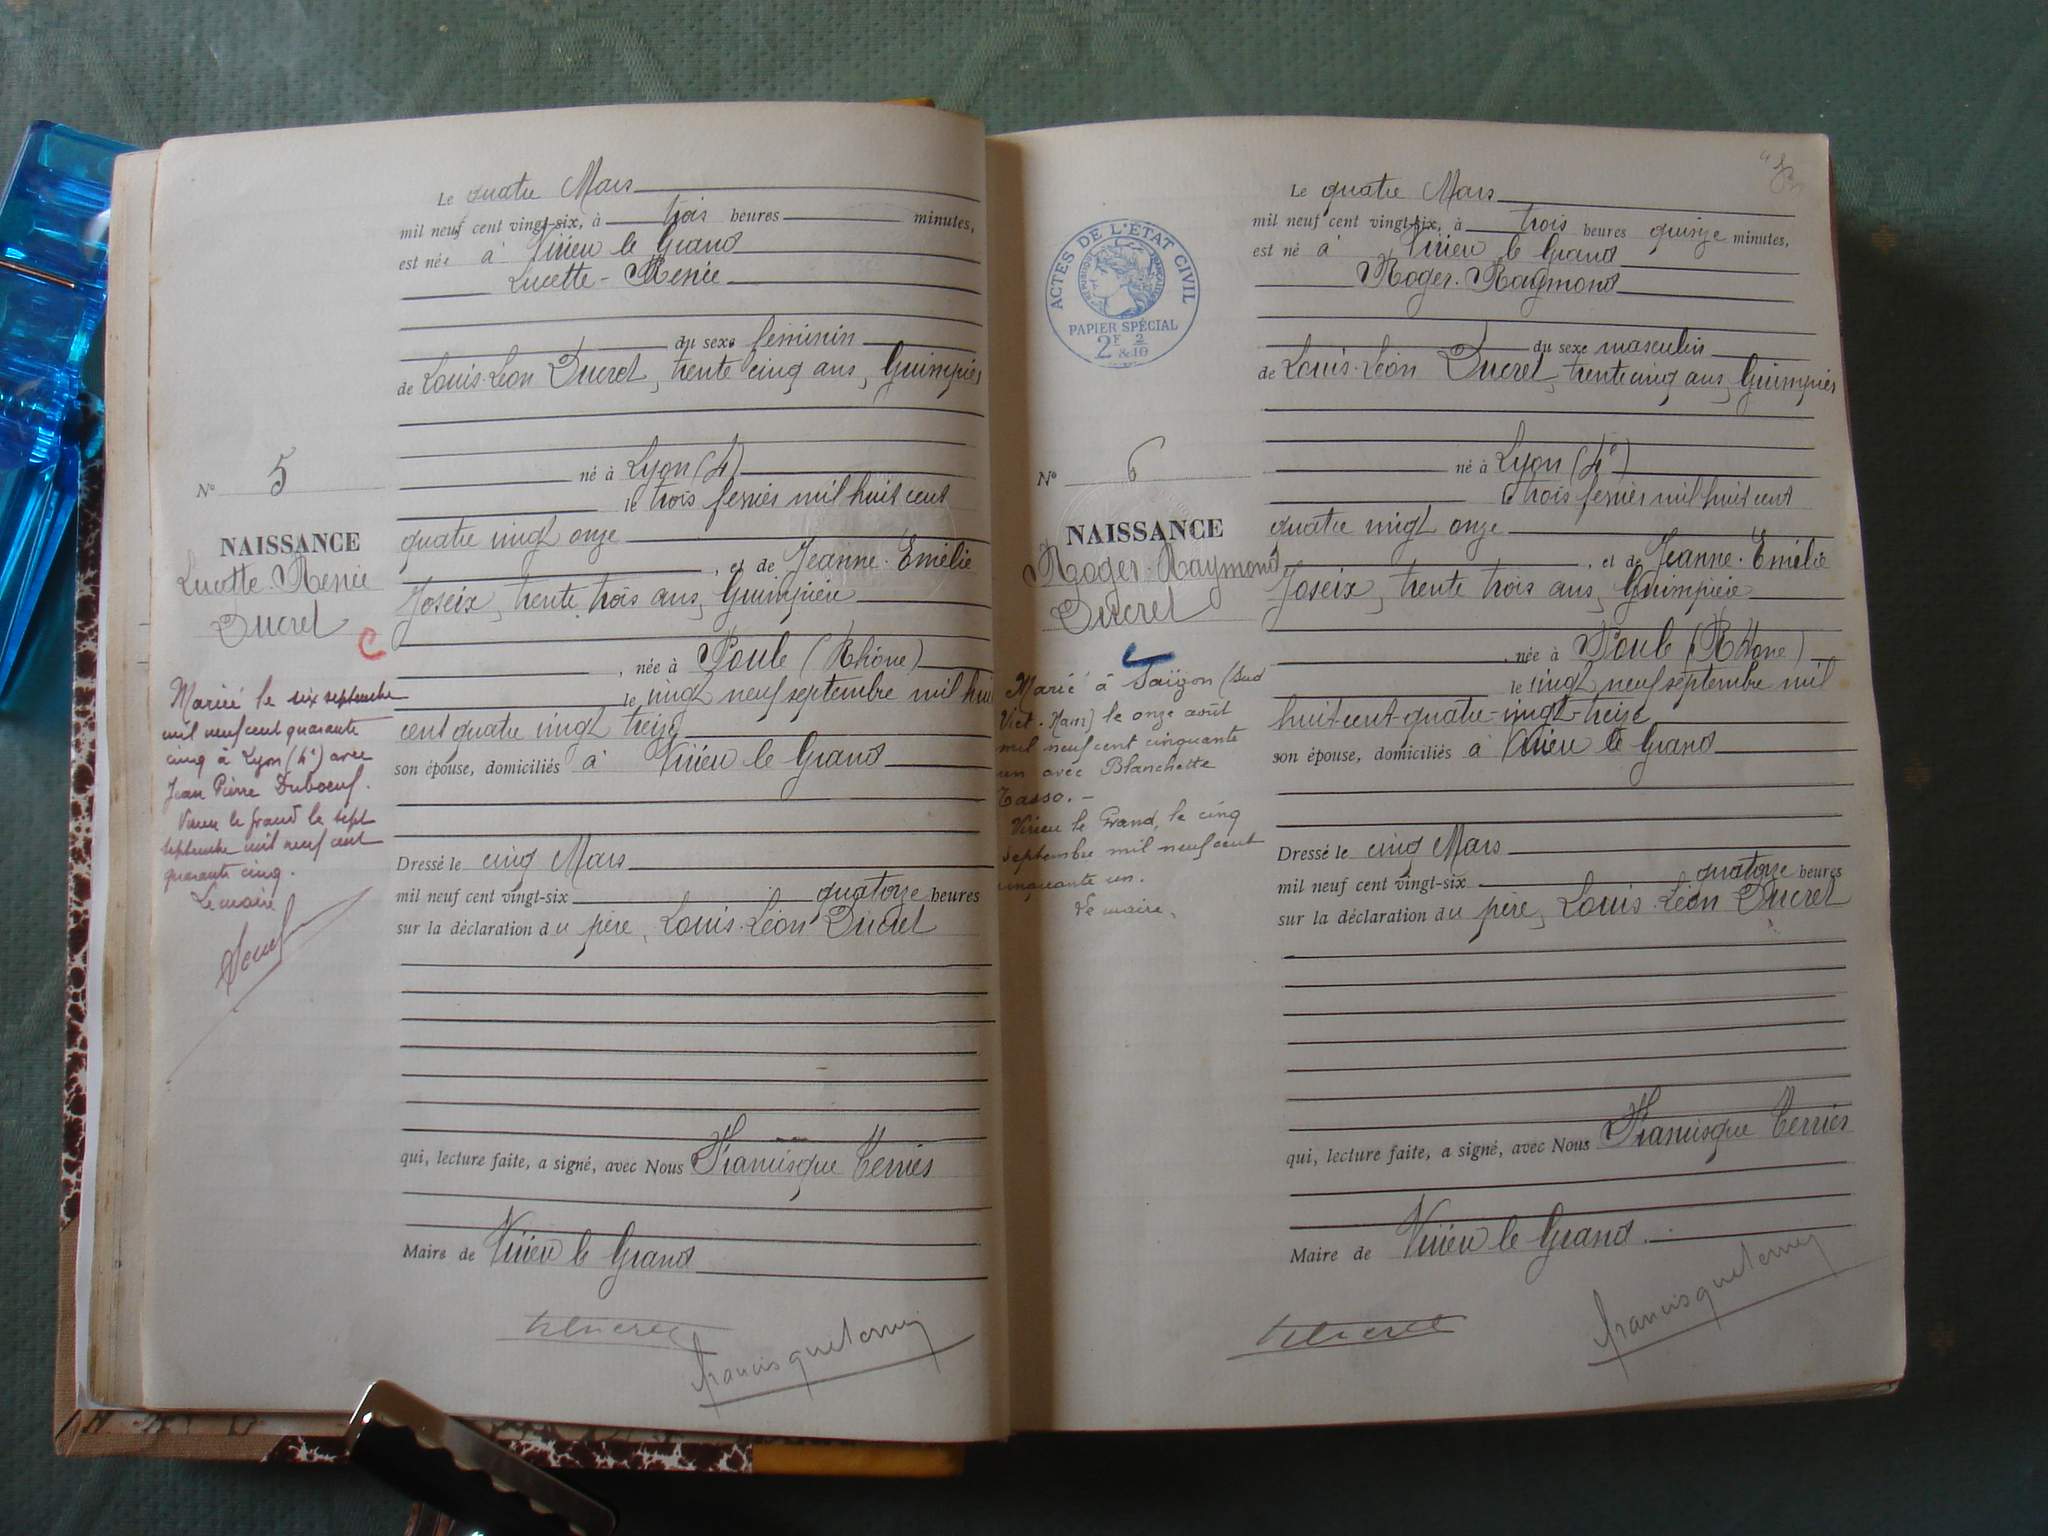 Le quatre Mars
mil neuf cent vingt-six, à trois heures minutes,
est née à Virieu le Grand
Lucette-Renée
du sexe féminin
de Louis-Léon Ducret, trente cinq ans, Guimpier
né à Lyon (4)
le trois fevrier mil huit cent
quatre vingt onze
, et de Jeanne-Emélie
Joseix, trente trois ans, Guimpière
, née à Poule (Rhône)
le vingt neuf septembre mil hui
cent quatre vingt treize
son épouse, domiciliés à Virieu le Grand
Dressé le cinq Mars
mil neuf cent vingt-six quatorze heures
sur la déclaration du père, Louis-Léon Ducret
qui, lecture faite, a signé, avec Nous Francisque Terrier
Maire de Virieu le Grand
N° 5
NAISSANCE
Lucette-Renée
Ducret
C
Mariée le six septembre
mil neuf cent quarante
cinq à Lyon (4e) avec
Jean Pierre Duboeuf.
Virieu le Grand le sept
septembre mil neuf cent
quarante cinq.
Le maire
Le quatre Mars
mil neuf cent vingt-six, à trois heures quinze minutes,
est né à Virieu le Grand
Roger-Raymond
du sexe masculin
de Louis-Léon Ducret, trente cinq ans, Guimpier
né à Lyon (4e)
le trois fevrier mil huit cent
quatre vingt onze
, et de Jeanne-Emélie
Joseix, trente trois ans, Guimpière
, née à Poule (Rhône)
le vingt neuf septembre mil
huit-cent-quatre-vingt-treize
son épouse, domiciliés à Virieu le Grand
Dressé le cinq Mars
mil neuf cent vingt-six quatorze heures
sur la déclaration du père, Louis-Léon Ducret
qui, lecture faite, a signé, avec Nous Francisque Terrier
Maire de Virieu le Grand.
ACTES DE L'ETAT CIVIL
REPUBLIQUE FRANÇAISE
PAPIER SPÉCIAL
2F 2
&10
N° 6
NAISSANCE
Roger-Raymond
Ducret
Marié à Saïgon (Sud
Viet-Nam) le onze août
mil neuf cent cinquante
un avec Blanchette
Tasso.-
Virieu le Grand, le cinq
septembre mil neuf cent
cinquante un.
Le maire,